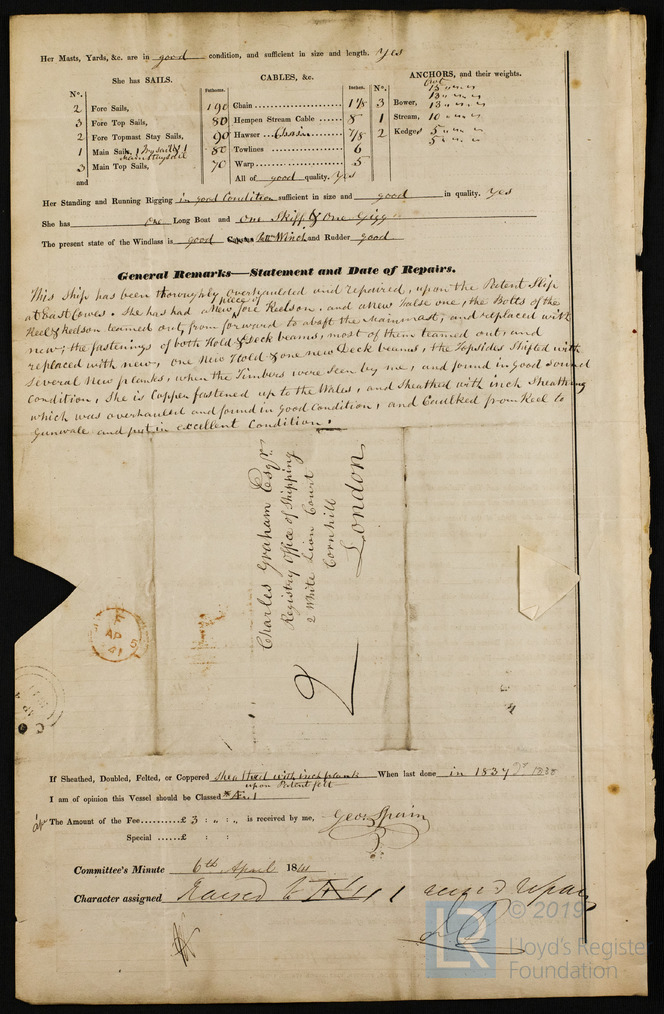 Her Masts, Yards, &c. are in good condition, and sufficient in size and length. Yes
She has SAILS.
CABLES, &c.
ANCHORS, and their weights.
No.
Fathoms.
Inches.
No.
2 Fore Sails,
3 Fore Top Sails,
2 Fore Topmast Stay Sails,
1 Main Sails, 1 Trysail & 1
Main Staysail
3 Main Top Sails,
and
190 Chain 1 1/8
80 Hempen Stream Cable 8
90 Hawser Chain 7/8
80 Towlines 6
70 Warp 5
All of good quality. Yes
Cwt
3 Bower,
1 Stream,
2 Kedge,
Her Standing and Running Rigging in good Condition sufficient in size and good in quality. Yes
She has one Long Boat and One Skiff & One Gigg
The present state of the Windlass is good Capstan Patt Winch and Rudder good
General Remarks—Statement and Date of Repairs.
This Ship has been thoroughly overhaulded and repaired, upon the Patent Slip
at East Cowes. She has had a New piece of Fore Keelson. and a New False one, the Bolts of the
Keel & Keelson teamed out, from forward to abaft the Mainmast, and replaced with
new; the fastenings of both Hold & Deck beams, most of them teamed out and
replaced with new, one New Hold & one new Deck beams, the Topsides Shifted with
several New planks, when the Timbers were seen by me, and found in good sound
Condition, She is Copper fastened up to the Wales, and Sheathed with inch Sheathing
which was overhauled and found in good Condition, and Caulked from Keel to
Gunwale and put in excellent Condition.
Charles Graham Esqr
Registry Office of Shipping
2 White Lion Court
Cornhill
London
AP
5
41
If Sheathed, Doubled, Felted, or Coppered Sheathed with inch plank When last done in 1837 or 1838
upon Patent felt
I am of opinion this Vessel should be Classed Æ 1
The Amount of the Fee £ 3 : " : " is received by me,
Special £ : :
Committee's Minute 6th April 1841
Character assigned Raised to
© 2019
Lloyd's Register
Foundation
LR